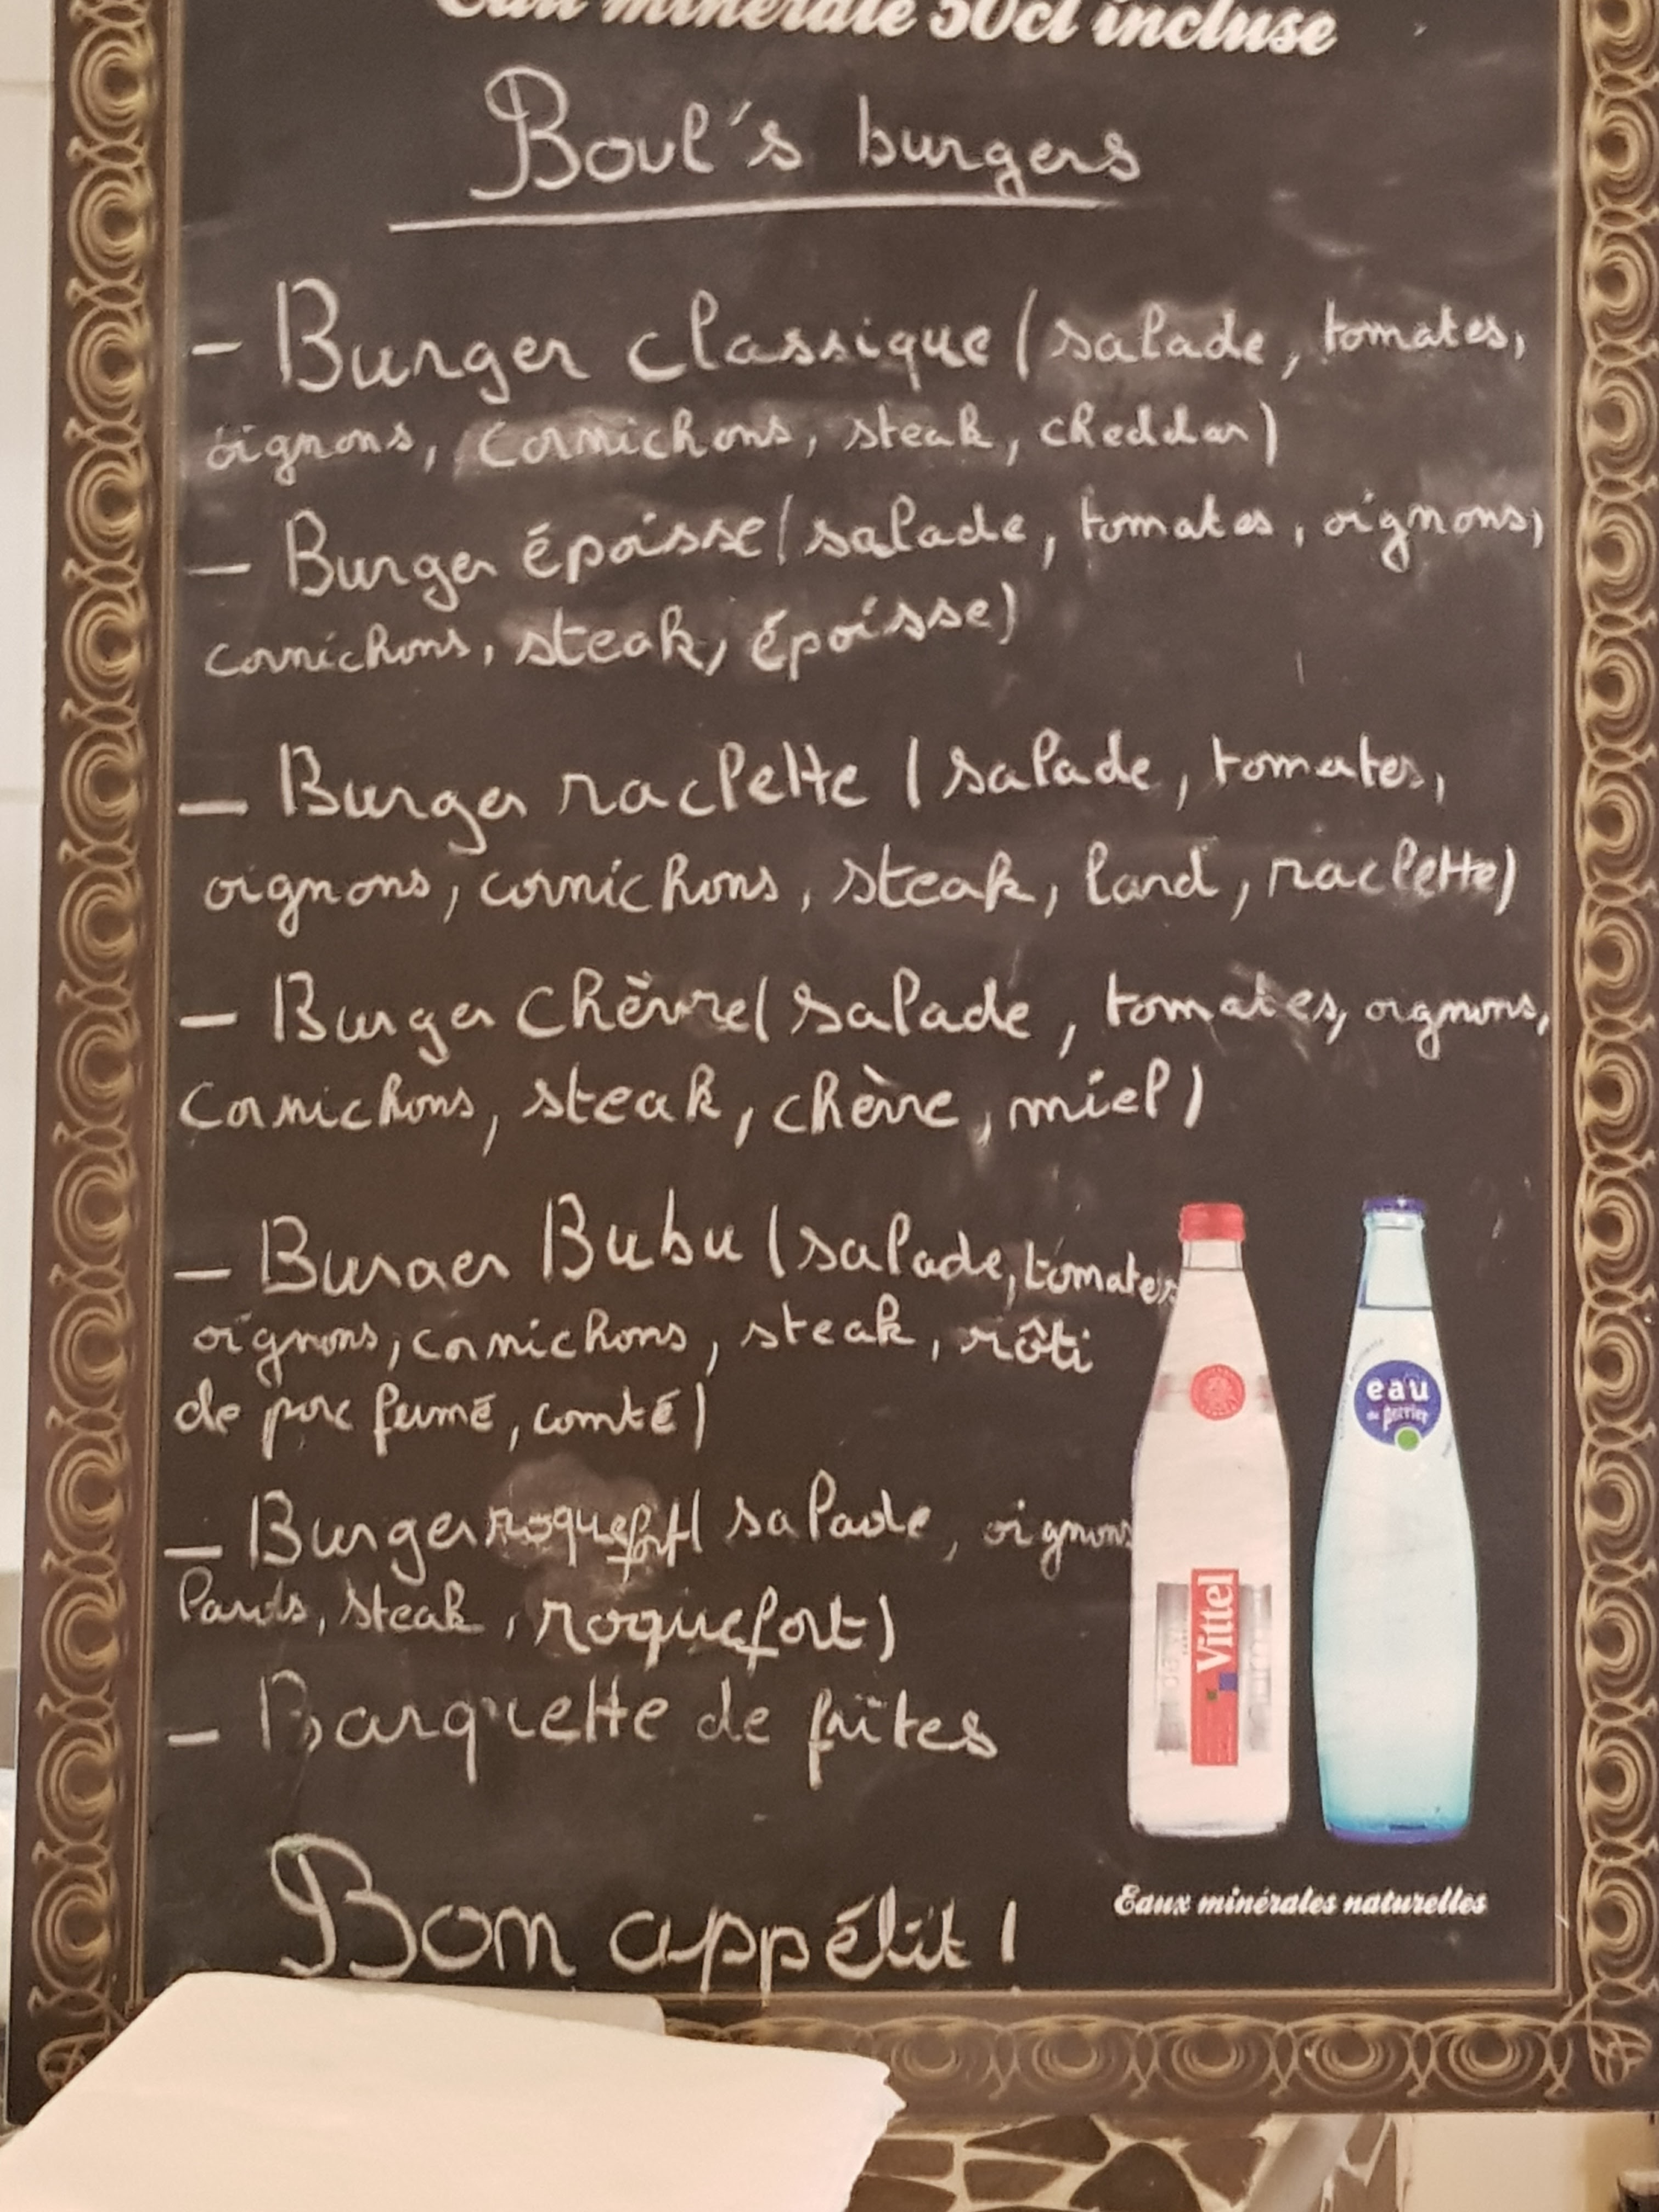 Eau minérale 50cl incluse
Boul's burgers
- Burger classique (salade, tomates,
oignons, cornichons, steak, cheddar)
- Burger époisse (salade, tomates, oignons,
cornichons, steak, époisse)
- Burger raclette (salade, tomates,
oignons, cornichons, steak, lard, raclette)
- Burger chèvre (salade, tomates, oignons,
cornichons, steak, chèvre, miel)
- Burger Bubu (salade, tomates
oignons, cornichons, steak, rôti
de porc fumé, comté)
- Burger roquefort (salade, oignons
lards, steak, roquefort)
- Barquette de frites
Bon appétit !
eau
de perrier
Vittel
Eaux minérales naturelles